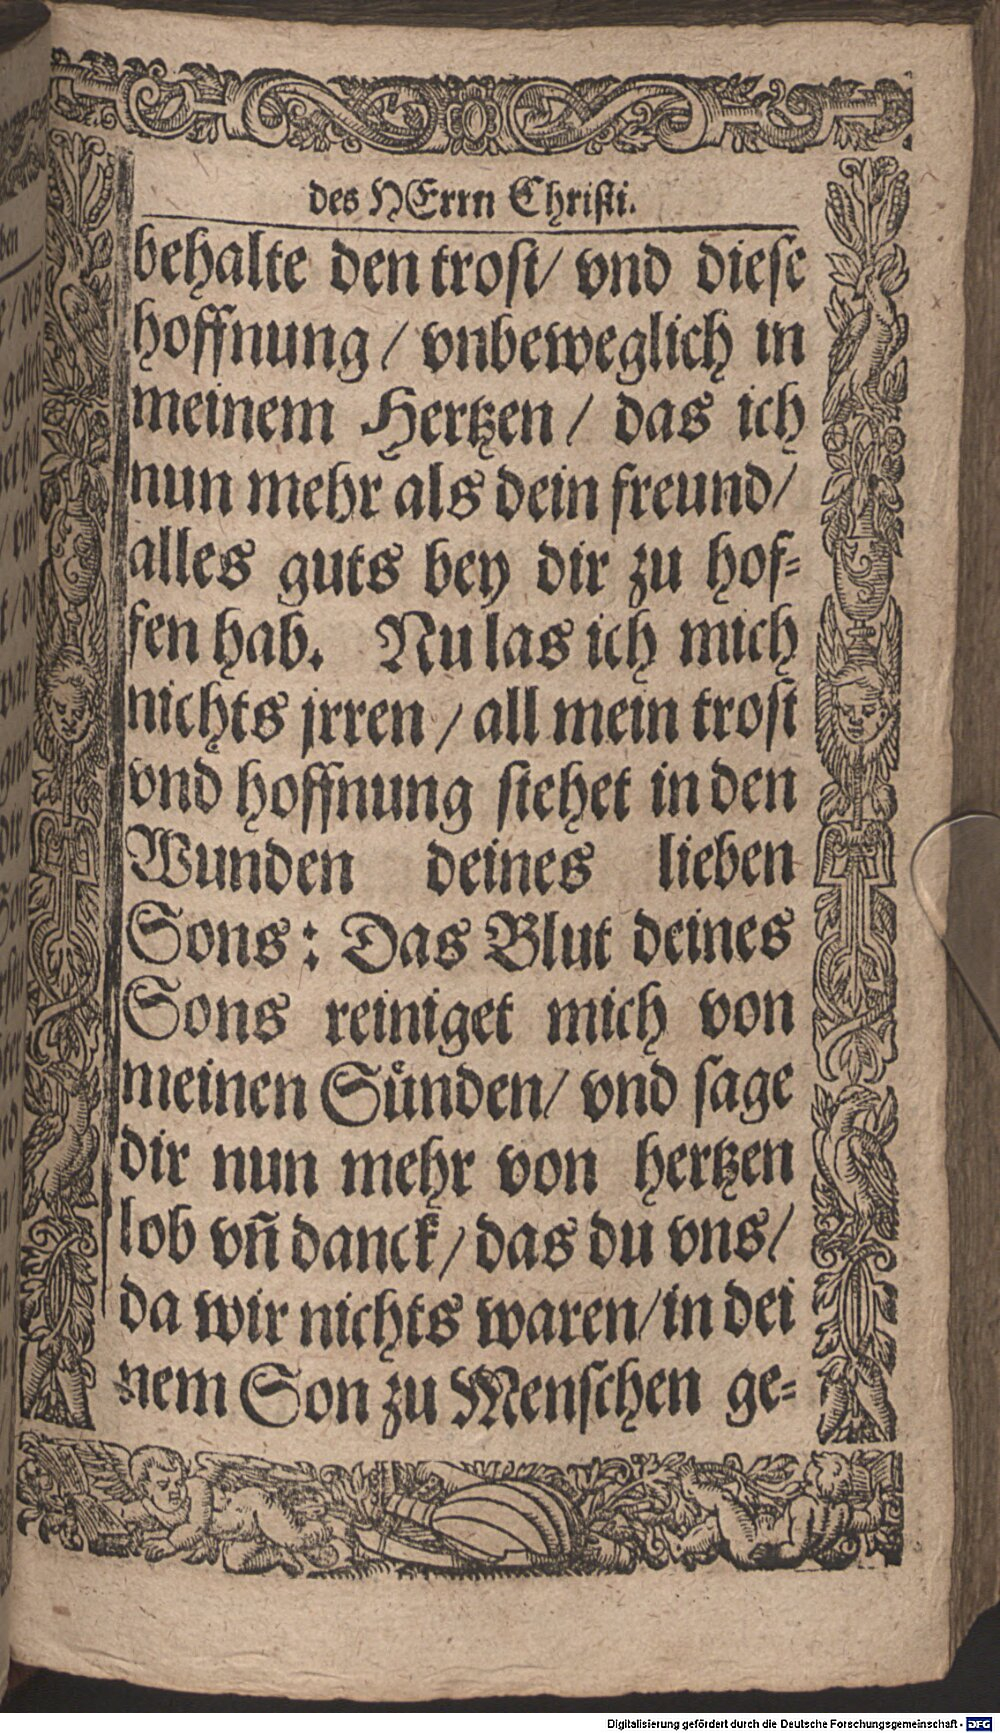 des HErrn Christi.
behalte den trost/ vnd diese
hoffnung / vnbeweglich in
meinem Hertzen / das ich
nun mehr als dein freund/
alles guts bey dir zu hof-
fen hab. Nu las ich mich
nichts jrren / all mein trost
vnd hoffnung stehet in den
Wunden deines lieben
Sons: Das Blut deines
Sons reiniget mich von
meinen Sünden/ vnd sage
dir nun mehr von hertzen
lob vñ danck/ das du vns/
da wir nichts waren/ in dei
nem Son zu Menschen ge-
Digitalisierung gefördert durch die Deutsche Forschungsgemeinschaft - DFG